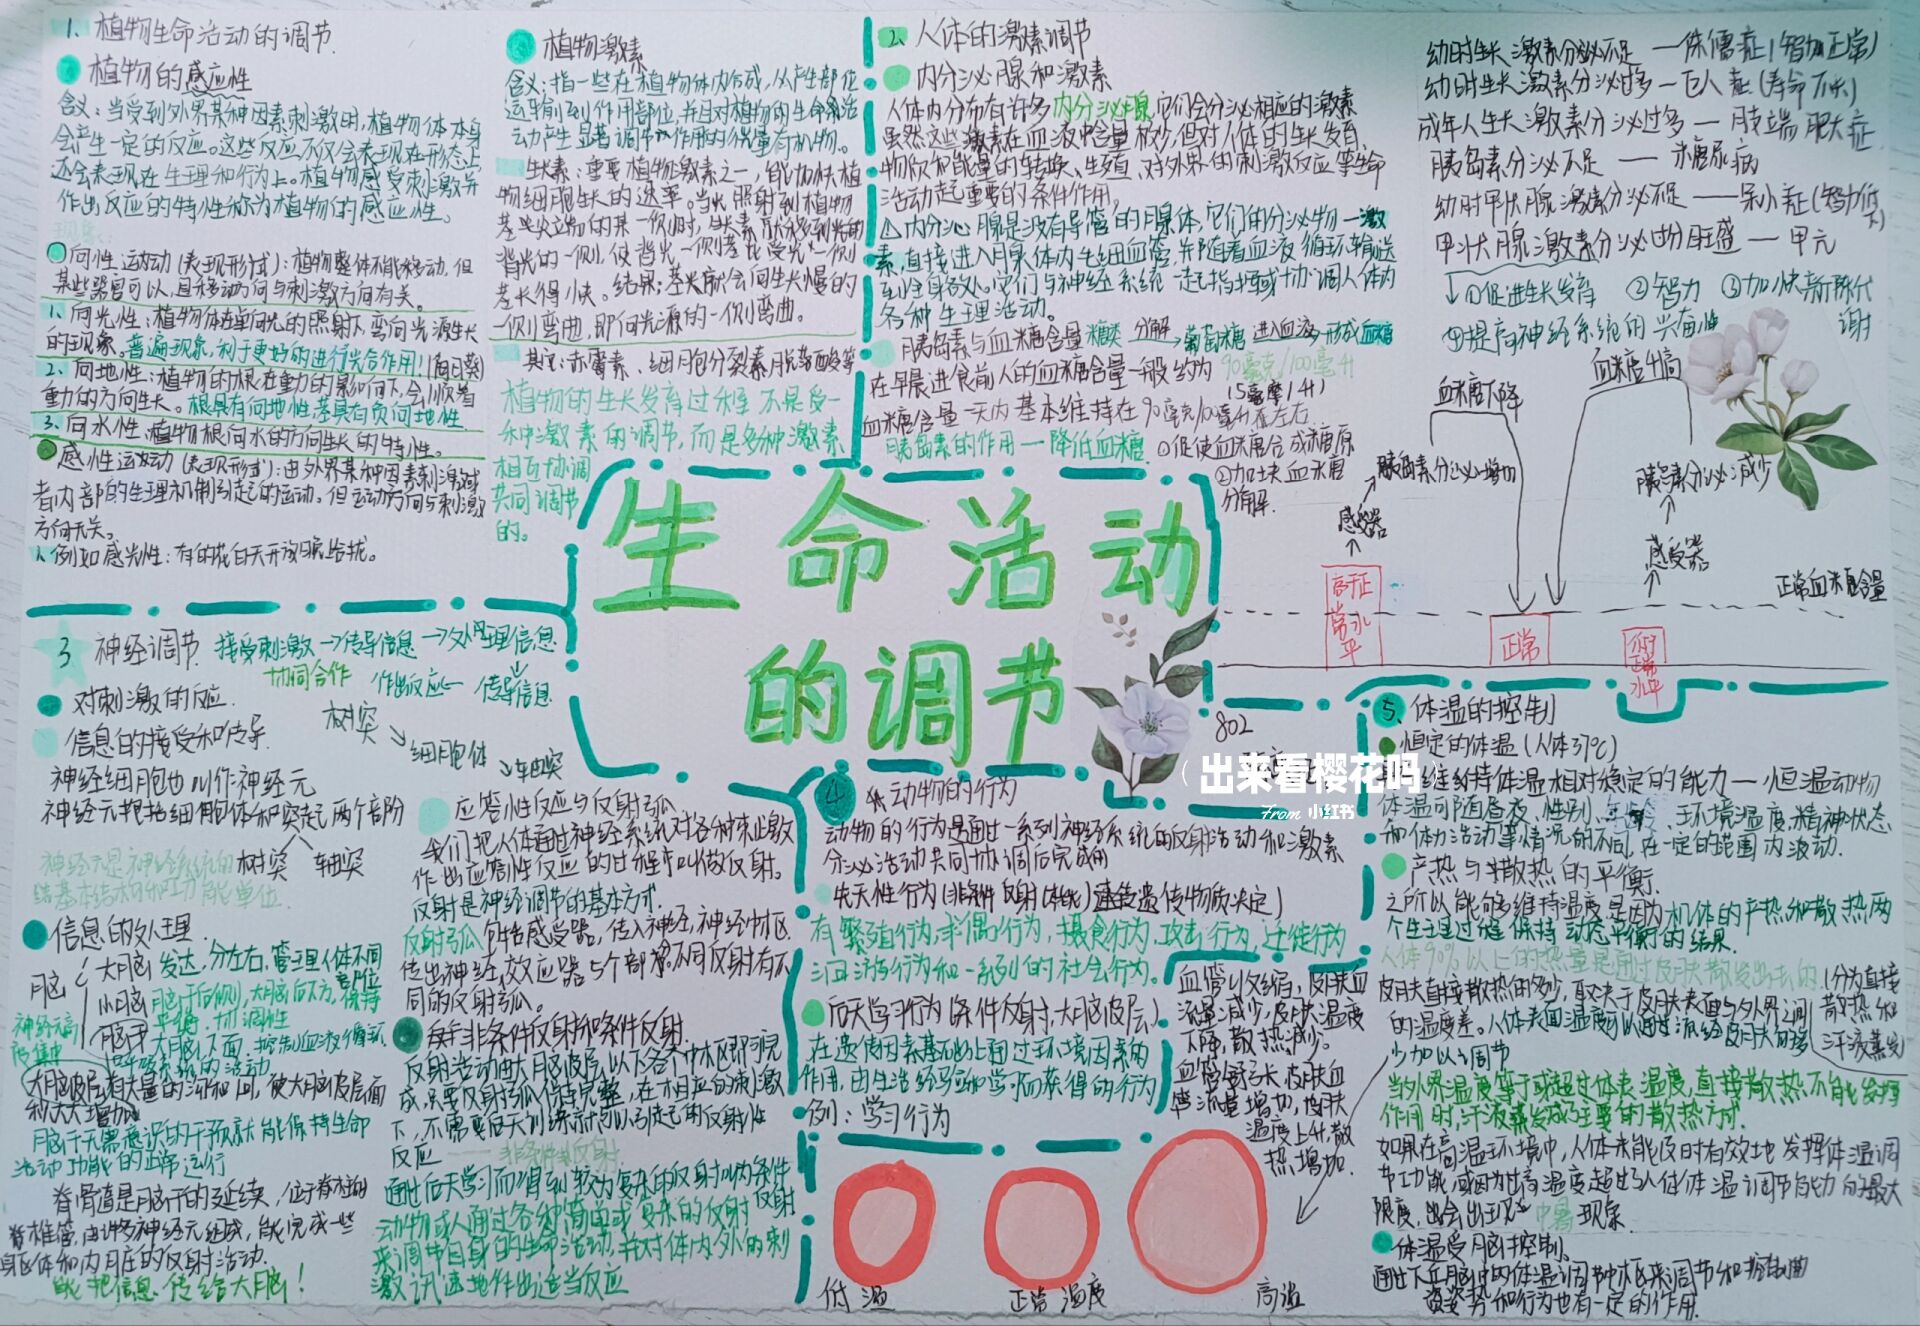 1、植物生命活动的调节
植物的感应性
含义：当受到外界某种因素刺激时，植物体本身
会产生一定的反应。这些反应不仅会表现在形态上
还会表现在生理和行为上。植物感受刺激并
作出反应的特性称为植物的感应性。
向性运动（表现形式）：植物整体不能移动，但
某些器官可以，且移动方向与刺激方向有关。
1、向光性：植物体在单向光的照射下，弯向光源生长
的现象。普遍现象，利于更好的进行光合作用！（向日葵）
2、向地性：植物的根在重力的影响下，会顺着
重力的方向生长。根具有向地性，茎具有负向地性。
3、向水性：植物根向水的方向生长的特性。
感性运动（表现形式）：由外界某种因素刺激或
者内部的生理机制引起的运动。但运动方向与刺激
方向无关。
1、例如感光性：有的花白天开放晚上合拢。
植物激素
含义：指一些在植物体内合成，从产生部位
运输到作用部位，并且对植物的生命活
动产生显著调节作用的微量有机物。
生长素：重要植物激素之一，能加快植
物细胞生长的速率。当光照射到植物
背光的一侧，使背光一侧茎比受光一侧
茎长得快。结果：茎尖就会向生长慢的
一侧弯曲，即向光源的一侧弯曲。
其它：赤霉素、细胞分裂素、脱落酸等
植物的生长发育过程不是受一
种激素的调节，而是多种激素
相互协调
共同调节
的。
2、人体的激素调节
内分泌腺和激素
人体内分布有许多内分泌腺，它们会分泌相应的激素
虽然这些激素在血液中含量极少，但对人体的生长发育、
物质和能量的转换、生殖，对外界的刺激反应等生命
活动起重要的条件作用，
△内分泌腺是没有导管的腺体，它们的分泌物一激
素，直接进入腺体内毛细血管，并随着血液循环输送
到全身各处。它们与神经系统一起指挥或协调人体内
各种生理活动。
胰岛素与血糖含量 糖类 分解→葡萄糖 进入血液→形成血糖
在早晨进食前人的血糖含量一般约为 90毫克/100毫升
（5毫摩/升）
血糖含量一天内基本维持在90毫克/100毫升左右
胰岛素的作用—降低血糖 ①促使血糖合成糖原
②加快血糖
分解
幼时生长激素分泌不足—侏儒症（智力正常）
幼时生长激素分泌过多—巨人症（寿命不长）
成年人生长激素分泌过多—肢端肥大症
胰岛素分泌不足——糖尿病
幼时甲状腺激素分泌不足——呆小症（智力低下）
甲状腺激素分泌过份旺盛—甲亢
↓①促进生长发育 ②智力 ③加快新陈代
谢
④提高神经系统的兴奋性
血糖下降
血糖升高
胰岛素分泌增加
胰岛素分泌减少
感受器
感受器
正常血糖含量
高于正
常水
平
正常
低于
正常
水平
生命活动
的调节
802
出来看樱花吗
From 小红书
3、神经调节 接受刺激→传导信息→处理信息
协同合作 作出反应← 传导信息
对刺激的反应
树突
细胞体
轴突
信息的接受和传导
神经细胞也叫作神经元
神经元包括细胞体和突起两个部分
树突 轴突
神经元是神经系统的
结基本结构和功能单位
信息的处理
大脑 发达，分左右，管理人体不同部位
脑 小脑 脑干后侧，大脑后下方，保持
平衡，协调性
脑干 大脑下面，控制血液循环
大脑皮层有大量的沟和回，使大脑皮层面
积大大增加
脑干无需意识的干预就能保持生命
活动功能的正常运行
脊髓是脑干的延续，位于脊柱的
脊椎管，由许多神经元组成，能完成一些
身区体和内脏的反射活动
能把信息传给大脑！
应答性反应与反射弧
我们把人体通过神经系统对各种刺激
作出应答性反应的过程叫做反射。
反射是神经调节的基本方式
反射弧包括感受器，传入神经，神经中枢
传出神经，效应器5个部分，不同反射有不
同的反射弧。
非条件反射和条件反射
反射活动由大脑皮层以下各个中枢即可完
成，只要反射弧保持完整，在相应的刺激
下，不需要后天训练就可以引起的反射性
反应——非条件反射
通过后天学习而得到较为复杂的反射叫为条件
反射
动物或人通过各种简单或复杂的反射
来调节自身的生命活动，并对体内外的刺
激迅速地作出适当反应
4、动物的行为
动物的行为是通过一系列神经系统的反射活动和激素
分泌活动共同协调后完成的
先天性行为（非条件反射（本能）遗传物质决定）
有繁殖行为，求偶行为，摄食行为，攻击行为，迁徙行为
洄游行为和一系列的社会行为。
后天学习行为（条件反射，大脑皮层）
在遗传因素基础上通过环境因素的
作用，由生活经验和学习而获得的行为
例：学习行为
血管收缩，皮肤血
流量减少，皮肤温度
下降，散热减少。
血管舒张，皮肤血
管流量增加，皮肤
温度上升，散
热增加
低温
正常温度
高温
5、体温的控制
恒定的体温（人体37℃）
维持体温相对稳定的能力—恒温动物
体温可随昼夜、性别、年龄、环境温度，精神状态
和体力活动等情况的不同，在一定的范围内波动。
产热与散热的平衡
之所以能够维持温度是因为机体的产热和散热两
个生理过程保持动态平衡的结果
人体90%以上的热量是通过皮肤散发出去的
（分为直接
散热和
汗液蒸发）
皮肤直接散热的多少，取决于皮肤表面与外界之间
的温度差。人体表面温度可以通过流经皮肤的多
少加以调节
当外界温度等于或超过体表温度，直接散热不能发挥
作用时，汗液蒸发成了主要的散热方式
如果在高温环境中，人体未能及时有效地发挥体温调
节功能，或因为过高温度超过了人体体温调节能力的最大
限度，也会出现中暑现象
体温受脑干控制。
通过下丘脑中的体温调节中枢来调节和控制
姿势和行为也有一定的作用